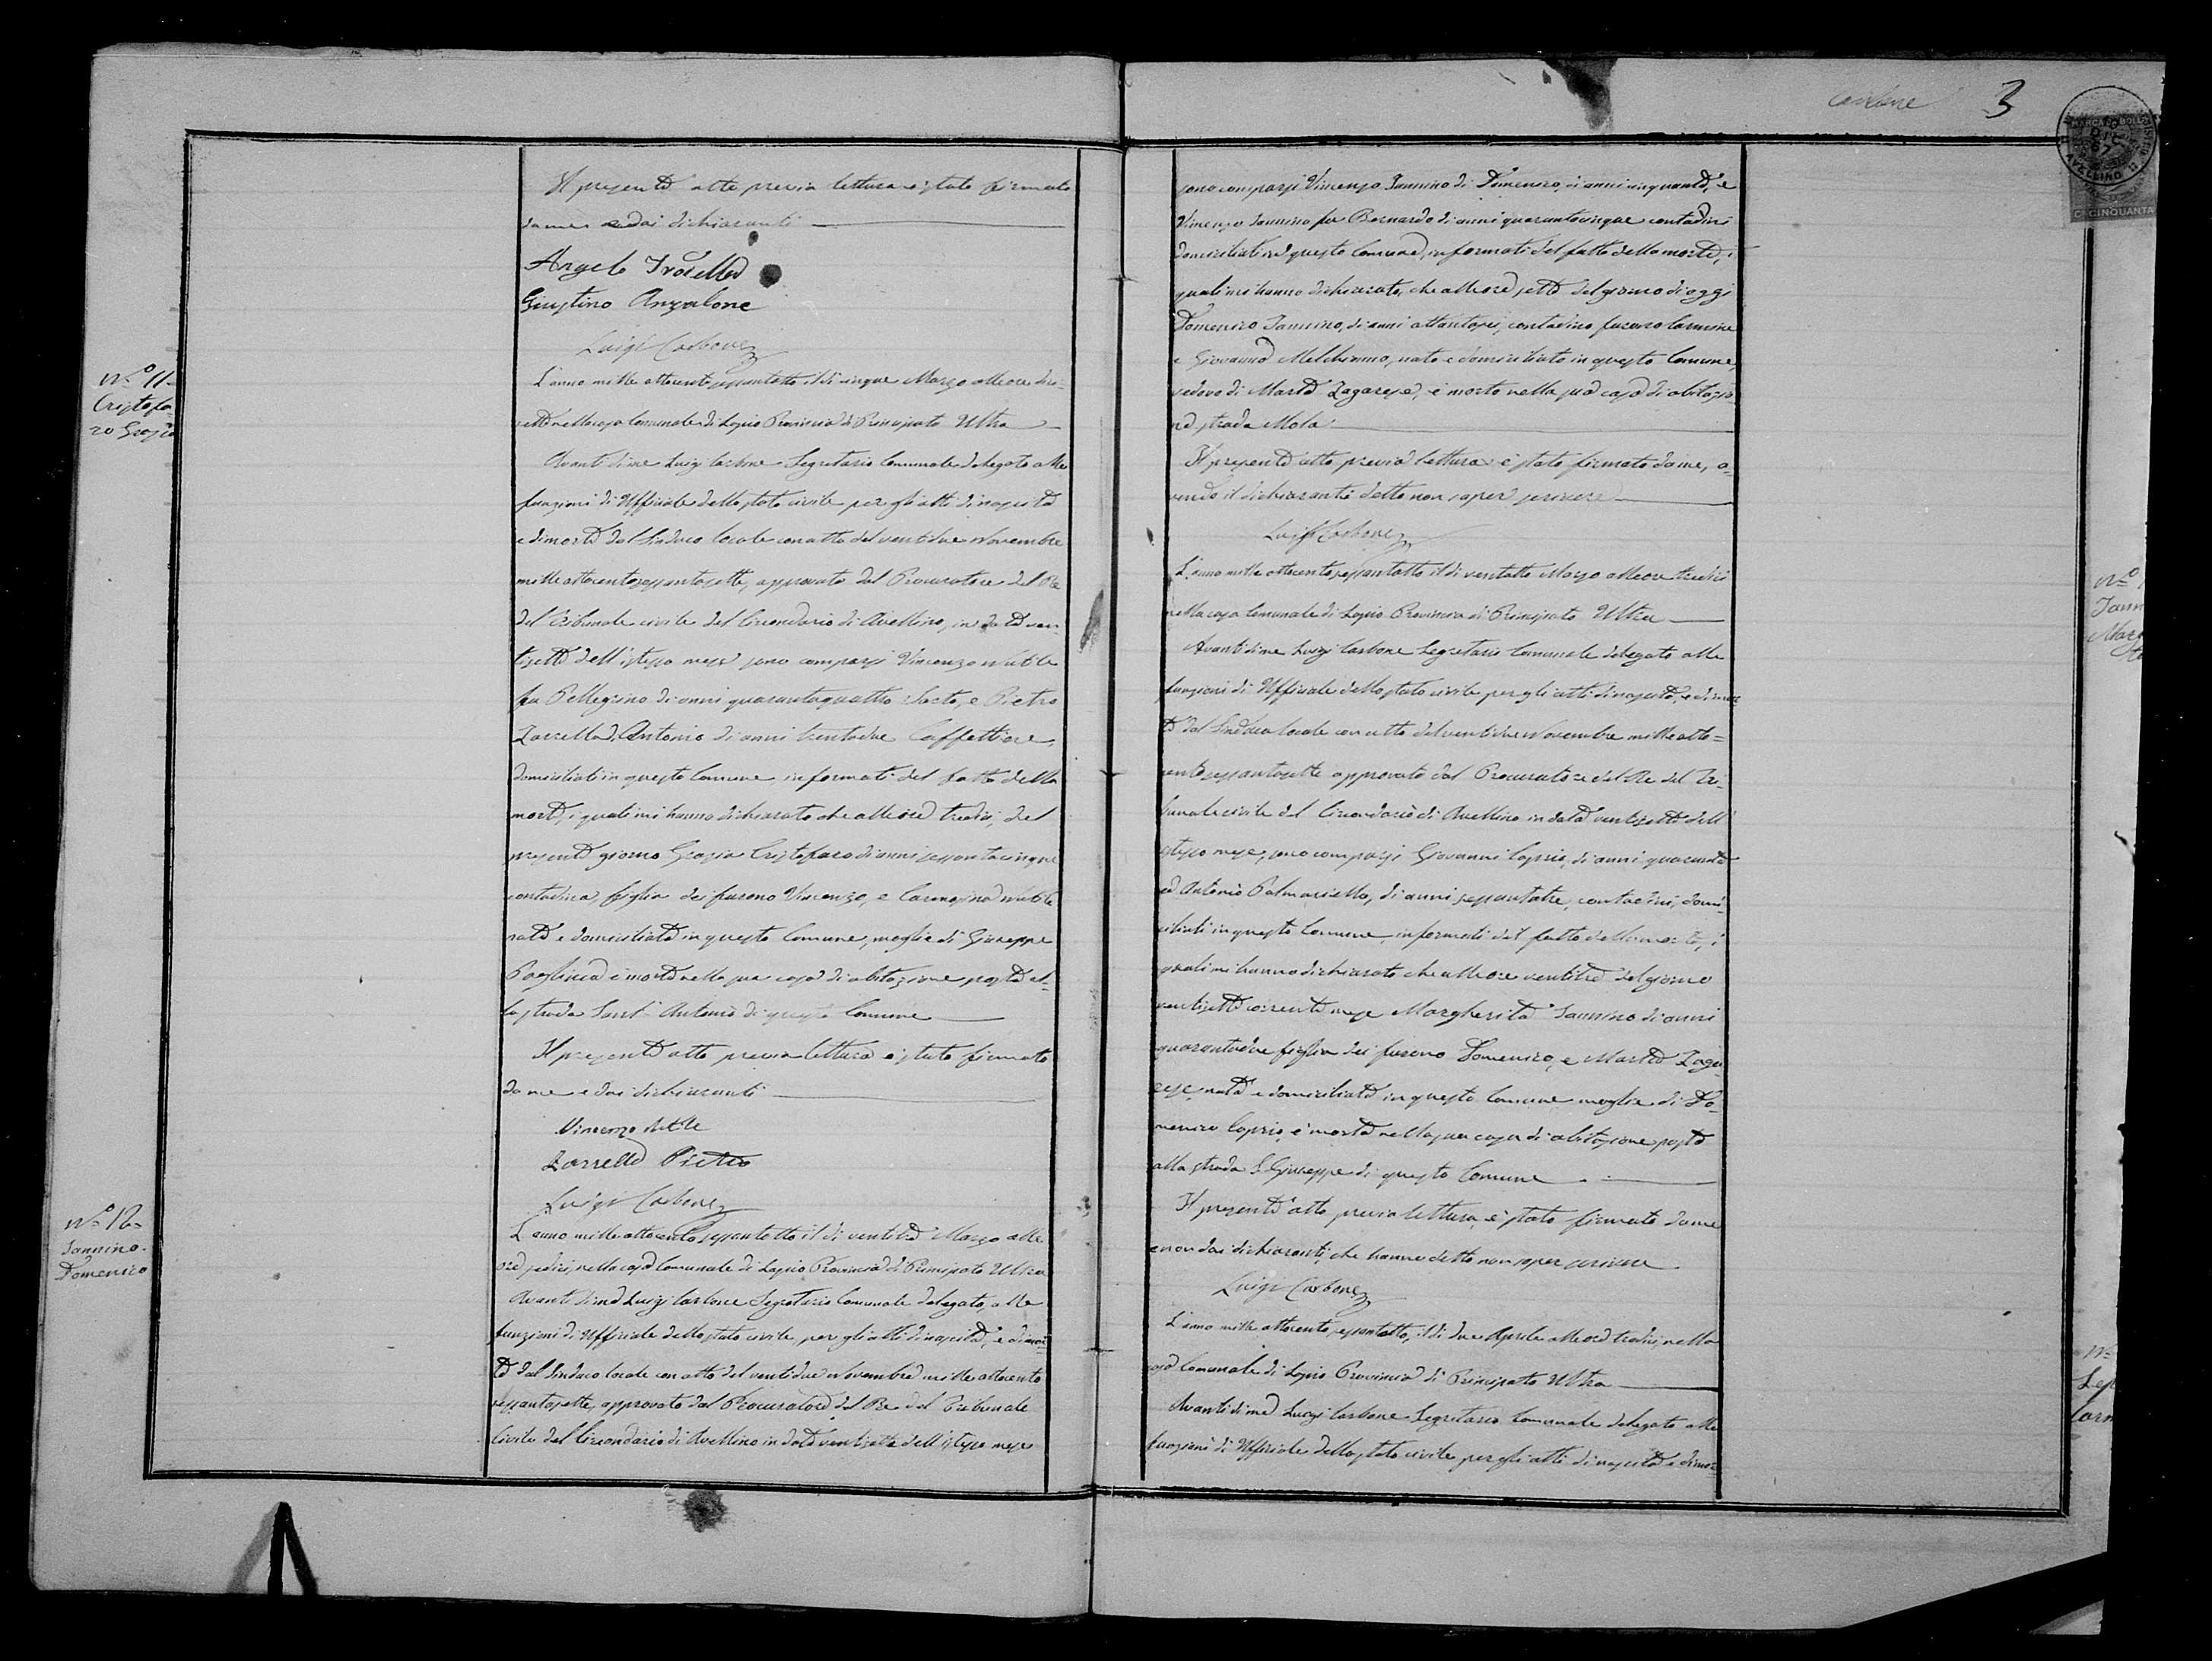 Il presente atto previa lettura è stato firmato
da me e dai dichiaranti
Angelo Troiella
Giustino Anzalone
Luigi Carbone
N.º 11=
Cristofa-
ro Grazia
L'anno mille ottocento sessantotto il dì cinque Marzo alle ore dieci-
sette nella casa Comunale di Lapio Provincia di Principato Ultra
Avanti di me Luigi Carbone Segretario Comunale delegato alle
funzioni di Uffiziale dello stato civile per gli atti di nascita
e di morte dal Sindaco locale con atto del ventidue Novembre
mille ottocento sessantasette, approvato dal Procuratore del Re
del Tribunale civile del Circondario di Avellino, in data ven-
tisette dell'istesso mese sono comparsi Vincenzo Nutile
fu Pellegrino di anni quarantaquattro Sarto, e Pietro
Zarrella di Antonio di anni trentadue Caffettiere,
domiciliati in questo Comune, informati del fatto della
morte, i quali mi hanno dichiarato che alle ore tredici, del
presente giorno Grazia Cristofaro di anni sessantacinque
contadina, figlia dei furono Vincenzo, e Carmosina Nutile
nata e domiciliata in questo Comune, moglie di Giuseppe
è morta nella sua casa di abitazione posta al-
la strada Sant' Antonio di questo Comune
Il presente atto previa lettura è stato firmato
da me e dai dichiaranti
Vincenzo Nutile
Zarrella Pietro
Luigi Carbone
N.º 12=
Iannino
Domenico
L'anno mille ottocento sessantotto il dì ventitre Marzo alle
ore sedici, nella casa Comunale di Lapio Provincia di Principato Ultra
Avanti di me Luigi Carbone Segretario Comunale delegato, alle
funzioni di Uffiziale dello stato civile, per gli atti di nascita, e di mor-
te dal Sindaco locale con atto del ventidue Novembre mille ottocento
sessantasette, approvato dal Procuratore del Re del Tribunale
Civile del Circondario di Avellino in data ventisette dell'istesso mese
Carbone 3
MARCA DA BOLLO
AVELLINO
C. CINQUANTA
sono comparsi Vincenzo Iannino di Domenico, di anni cinquanta, e
Vincenzo Iannino fu Bernardo di anni quarantacinque contadini
domiciliati in questo Comune, informati del fatto della morte, i
quali mi hanno dichiarato, che alle ore sette del giorno di oggi
Domenico Iannino, di anni ottantasei, contadino, furono Carmine
e Giovanna Melchionno, nato e domiciliato in questo Comune,
vedovo di Marta Zagarese, è morto nella sua casa di abitazio-
ne, strada Mola
Il presente atto previa lettura è stato firmato da me, a-
vendo il dichiaranti detto non saper scrivere
Luigi Carbone
L'anno mille ottocento sessantotto il dì ventotto Marzo alle ore tredici
nella casa Comunale di Lapio Provincia di Principato Ultra
Avanti di me Luigi Carbone Segretario Comunale delegato alle
funzioni di Uffiziale dello stato civile per gli atti di nascita, e di mor-
te dal Sindaco locale con atto del ventidue Novembre mille otto=
cento sessantasette approvato dal Procuratore del Re del Tri-
bunale civile del Circondario di Avellino in data ventisette dell'
istesso mese, sono comparsi Giovanni Caprio, di anni quaranta
ed Antonio Palmariello, di anni sessantatre, contadini, domi-
ciliati in questo Comune, informati del fatto della morte, i
quali mi hanno dichiarato che alle ore ventitre del giorno
ventisette corrente mese Margherita Iannino di anni
quarantadue figlia dei furono Domenico, e Marta Zaga-
rese, nata e domiciliata in questo Comune moglie di Do-
menico Caprio, è morta nella sua casa di abitazione posta
alla strada S. Giuseppe di questo Comune
Il presente atto previa lettura, è stato firmato da me
e non dai dichiaranti, che hanno detto non saper scrivere
Luigi Carbone
L'anno mille ottocento sessantotto, il dì due Aprile alle ore tredici, nella
casa Comunale di Lapio Provincia di Principato Ultra
Avanti di me Luigi Carbone Segretario Comunale delegato alle
funzioni di Uffiziale dello stato civile per gli atti di nascita e di mor-
N.º
Iann
Marg
N.º
Lep
Carm